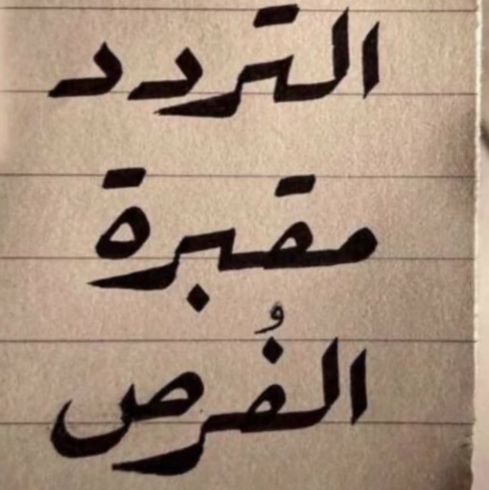 التردد
مقبرة
الفُرص